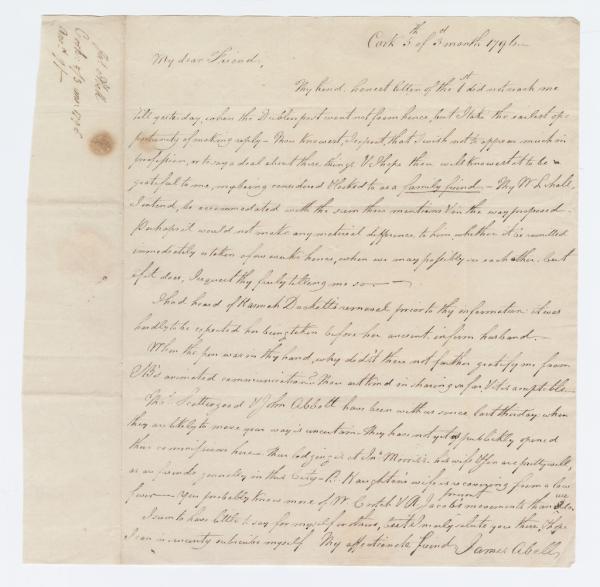 Cork 5th of 3rd month 1796 —
My dear Friend,
Thy kind honest letter of the 1st did not reach me
till yesterday, when the Dublin post went not from hence, but I take the earliest op-
portunity of making reply — Thou knowest, I expect, that I wish not to appear much in
profession, or to say a deal about these things & I hope thou well knowest it to be
grateful to me, my being considered & looked to as a family friend. — Thy W L shall,
I intend, be accommodated with the sum thou mentions & in the way proposed —
Perhaps it would not make any material difference to him, whether it be remitted
immediately or taken a few weeks hence, when we may possibly see each other, but
if it does, I request thy freely telling me so —
I had heard of Hannah Duckett's removal prior to thy information: it was
hardly to be expected her being taken before her ancient, infirm husband. —
When the pen was in thy hand, why didst thou not further gratify me from
animated communication? Thou art kind in sharing so far, & it is acceptable —
Thos Scattergood & John Abbott have been with us since last thursday: when
they are likely to move your way is uncertain — They have not yet publickly opened
their commissions here — their lodging is at Jns Morris's: his wife & son are pretty well,
as are friends generally in this City — Haughton's wife is recovering from a low
fever — You probably know more of W Crotch & A Jacob's present movements than we do.
I seem to have little to say for myself or others, so I'll merely salute you there, I hope
I can in sincerity subscribe myself Thy affectionate friend James Abell
Jas Abell
Cork 5/3 mo: 1796